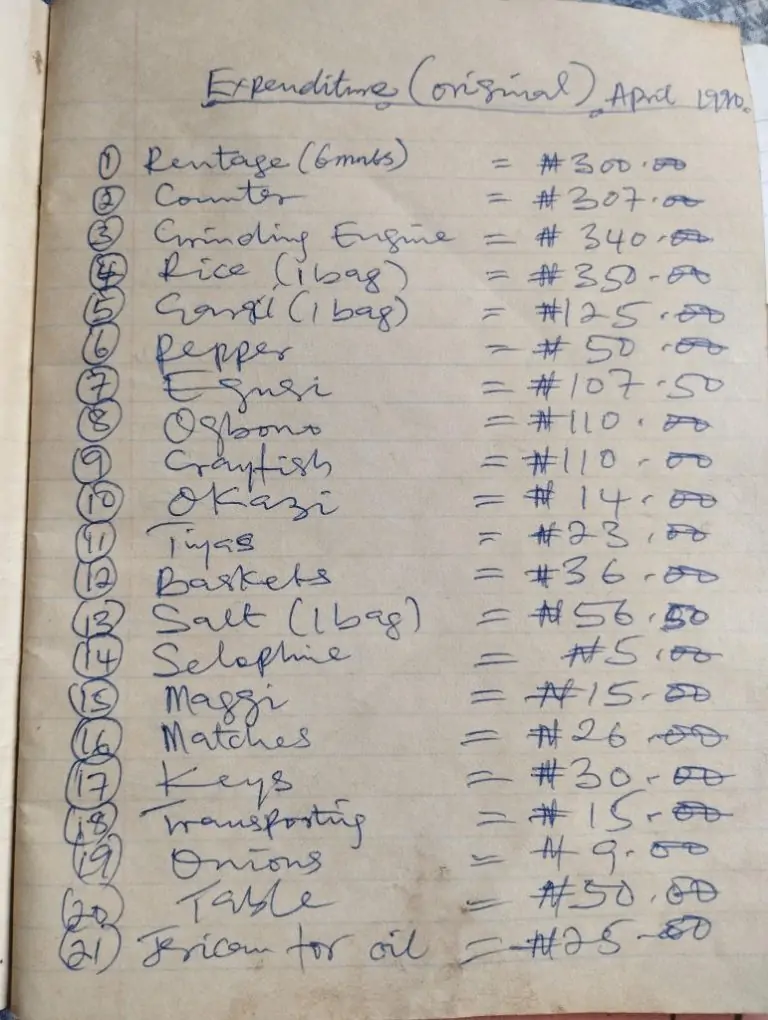 Expenditure (original) April 1990.
① Rentage (6mnts) = ₦300.00
② Counter = ₦307.00
③ Grinding Engine = ₦340.00
④ Rice (1bag) = ₦350.00
⑤ (1bag) = ₦125.00
⑥ Pepper = ₦50.00
⑦ Egusi = ₦107.50
⑧ Ogbono = ₦110.00
⑨ Crayfish = ₦110.00
⑩ Okazi = ₦14.00
⑪ = ₦23.00
⑫ Baskets = ₦36.00
⑬ Salt (1bag) = ₦56.50
⑭ Selophine = ₦5.00
⑮ Maggi = ₦15.00
⑯ Matches = ₦26.00
⑰ Keys = ₦30.00
⑱ Transporting = ₦15.00
⑲ Onions = ₦9.00
⑳ Table = ₦50.00
㉑ Jerican for oil = ₦25.00